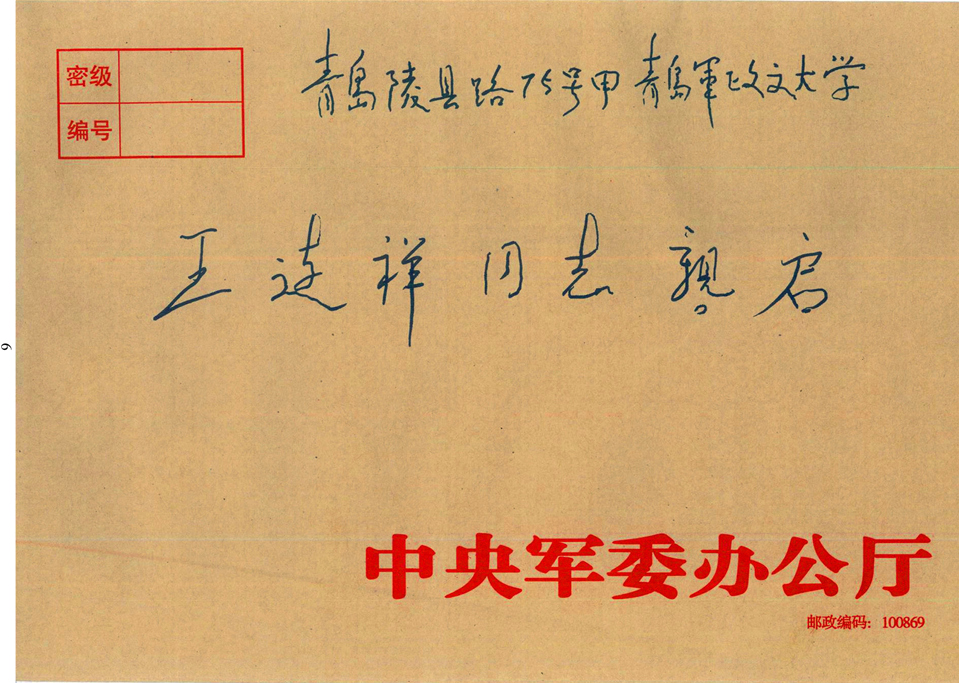 密级
编号
青島陵县路75号甲 青島軍政文大学
王建祥同志親启
中央军委办公厅
邮政编码：100869